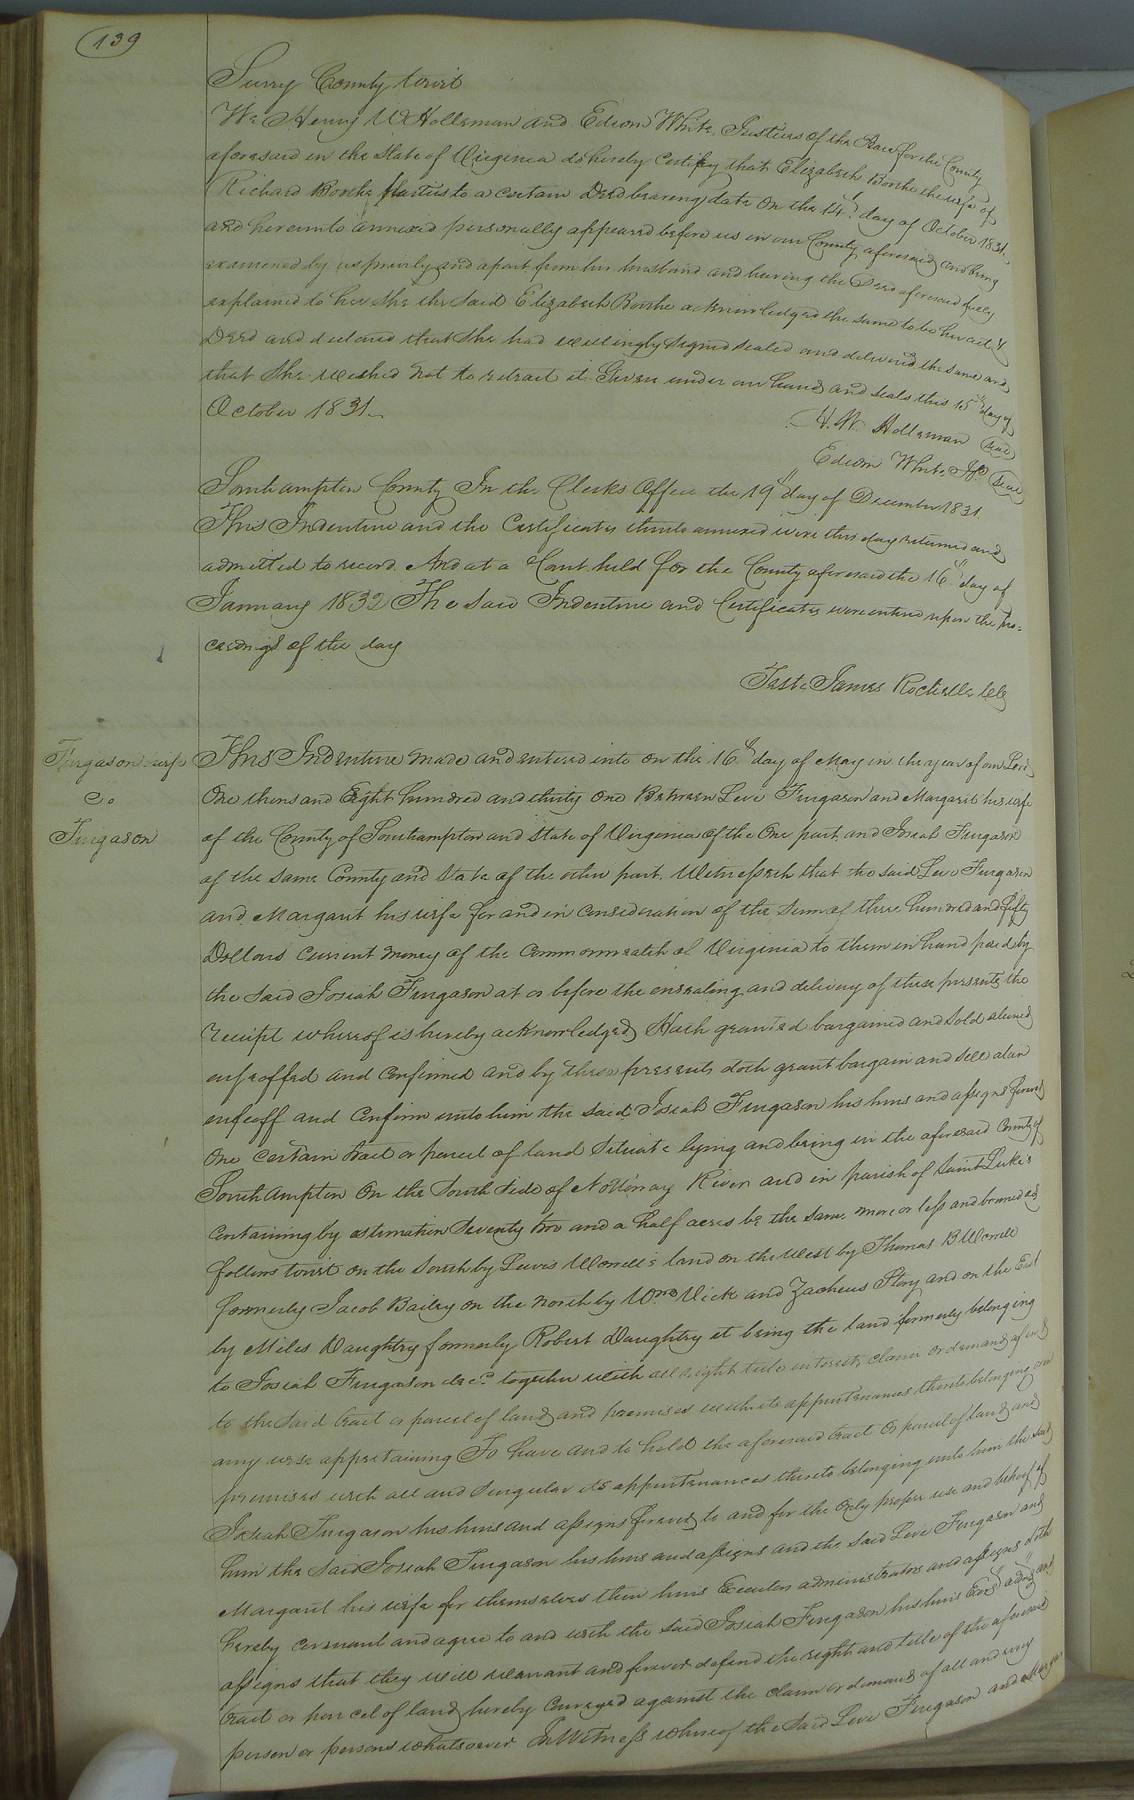 139
Surry County towit
We Henry W Holleman and Edwin White Justices of the Peace for the County
aforesaid in the State of Virginia do hereby Certify that Elizabeth Boothe the wife of
Richard Boothe parties to a certain Deed bearing date on the 14th day of October 1831
and hereunto annexed personally appeared before us in our County aforesaid and being
examined by us privily and apart from her husband and having the Deed aforesaid fully
explained to her she the said Elizabeth Boothe acknowledged the same to be her act &
Deed and declared that she had willingly signed sealed and delivered the same and
that she wished not to retract it Given under our hands and seals this 15th day of
October 1831
H. W. Holleman Seal
Edwin White JP Seal
Southampton County In the Clerks Office the 19th day of December 1831
This Indenture and the Certificates thereto annexed were this day returned and
admitted to record And at a Court held for the County aforesaid the 16th day of
January 1832 The said Indenture and Certificates were entered upon the pro=
ceedings of the day
Teste James Rochelle clk
Fergason & wife
To
Fergason
This Indenture made and entered into on the 16th day of May in the year of our Lord
One thousand Eight hundred and thirty one Between Levi Fergason and Margaret his wife
of the County of Southampton and State of Virginia of the One part and Josiah Fergason
of the same County and State of the other part. Witnesseth that the said Levi Fergason
and Margaret his wife for and in consideration of the sum of three hundred and fifty
Dollars current money of the Commonwealth of Virginia to them in hand paid by
the said Josiah Fergason at or before the ensealing and delivery of these presents the
receipt whereof is hereby acknowledged Hath granted bargained and sold aliened
enfeoffed and confirmed and by these presents doth grant bargain and sell alien
enfeoff and confirm unto him the said Josiah Fergason his heirs and assigns forever
One certain tract or parcel of land situate lying and being in the aforesaid County of
Southampton On the South side of Nottoway River and in parish of Saint Luke's
containing by estimation Seventy two and a half acres be the same more or less and bounded as
follows towit on the South by Lewis Worrell's land on the West by Thomas B Worrell
formerly Jacob Bailey on the north by Wm Vick and Zacheus Story and on the East
by Miles Daughtry formerly Robert Daughtry it being the land formerly belonging
to Josiah Fergason decd. together with all right title interest claim or demand of in &
to the said tract or parcel of land and premises with its appurtenances thereto belonging or in
any wise appertaining To have and to hold the aforesaid tract or parcel of land and
premises with all and singular its appurtenances thereto belonging unto him the said
Josiah Fergason his heirs and assigns forever to and for the only proper use and behoof of
him the said Josiah Fergason his heirs and assigns and the said Levi Fergason and
Margaret his wife for themselves their heirs Executors administrators and assigns doth
hereby covenant and agree to and with the said Josiah Fergason his heirs Exors admrs and
assigns that they will warrant and forever defend the right and title of the aforesaid
tract or parcel of land hereby conveyed against the claim or demand of all and every
person or persons whatsoever In Witness whereof the said Levi Fergason and Margaret